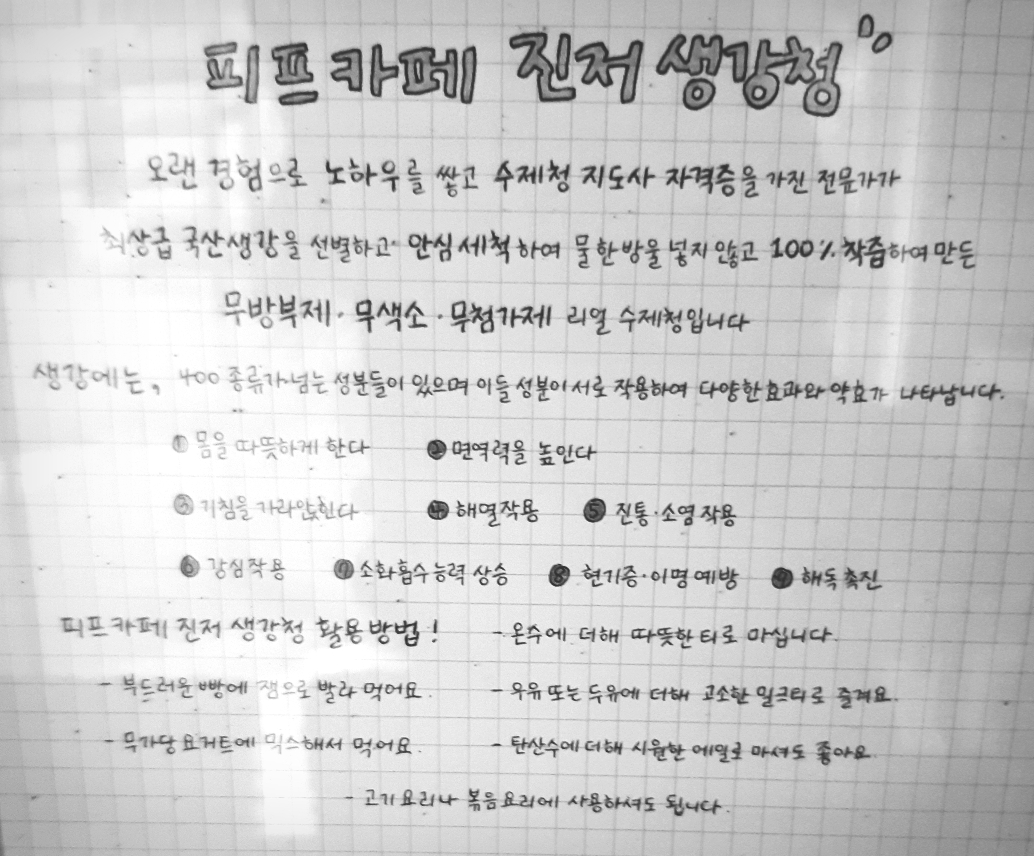 피프카페 진저 생강청
오랜 경험으로 노하우를 쌓고 수제청 지도사 자격증을 가진 전문가가
최상급 국산생강을 선별하고 안심세척하여 물 한방울 넣지 않고 100% 착즙하여 만든
무방부제·무색소·무첨가제 리얼 수제청입니다
생강에는, 400종류가 넘는 성분들이 있으며 이들 성분이 서로 작용하여 다양한 효과와 약효가 나타납니다.
① 몸을 따뜻하게 한다 ② 면역력을 높인다
③ 기침을 가라앉힌다 ④ 해열작용 ⑤ 진통·소염작용
⑥ 강심작용 ⑦ 소화흡수능력 상승 ⑧ 현기증·이명예방 ⑨ 해독촉진
피프카페 진저 생강청 활용방법! - 온수에 더해 따뜻한 티로 마십니다.
- 부드러운 빵에 잼으로 발라 먹어요. - 우유 또는 두유에 더해 고소한 밀크티로 즐겨요.
- 무가당 요거트에 믹스해서 먹어요. - 탄산수에 더해 시원한 에일로 마셔도 좋아요.
- 고기요리나 볶음요리에 사용하셔도 됩니다.